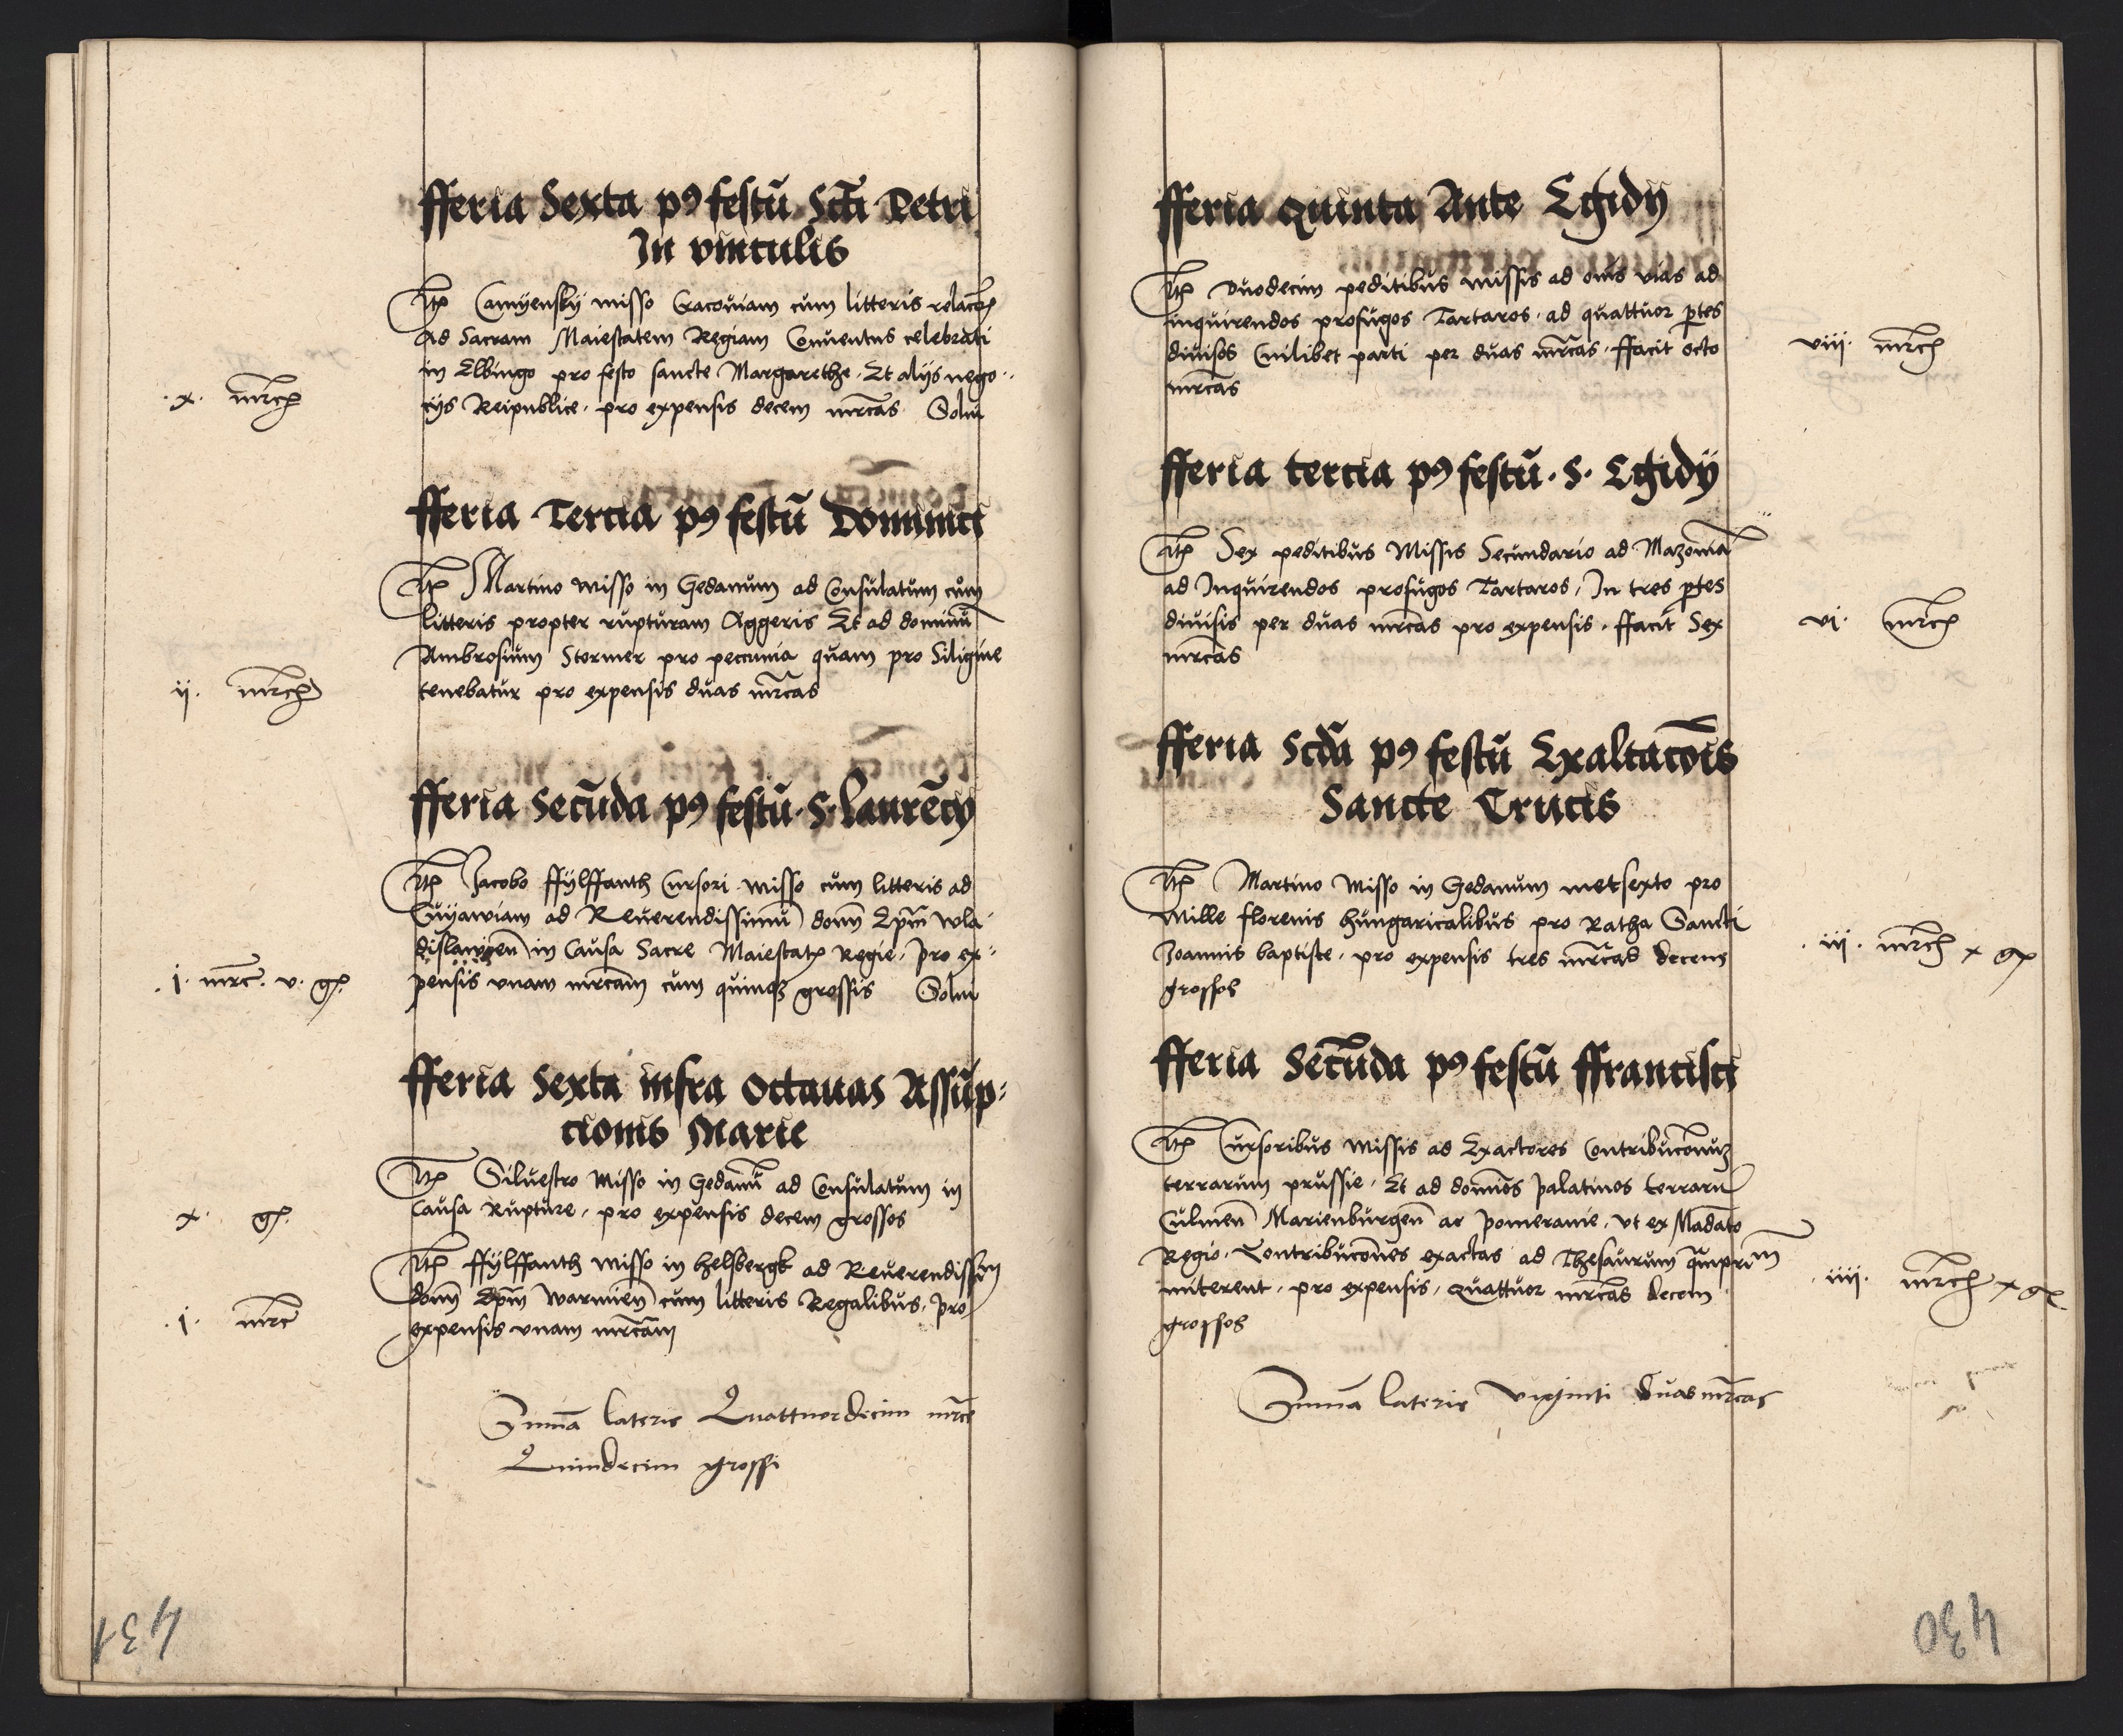 fferia Sexta pꝰ festū Scti Petri
In vinculis
Itꝫ Camyensky misso Cracouiam cum litteris relacōꝫ
Ad Sacram Maiestatem Regiam Conuentus celebrati
x. mrcꝫ
in Elbingo pro festo sancte Margarethe. Et alijs nego-
cijs Reipublice. pro expensis decem mrcas Solui
fferia Tercia pꝰ festū Dominici
Itꝫ Martino misso in Gedanum ad Consulatum cum
litteris propter rupturam Aggeris Et ad dominū
Ambrosium Stormer pro peccunia quam pro Siligine
ij. mrcꝫ
tenebatur pro expensis duas mrcas
fferia Secūda pꝰ festū. S. Laurēcy
Itꝫ Jacobo ffylffanth Cursori misso cum litteris ad
Cuyawiam ad Reuerendissimū domn̄ Epm̄ wla-
dislawien̄ in Causa Sacre Maiestatꝫ Regie, pro ex-
.j. mrc. v. gꝫ.
pensis vnam mrcam cum quinqꝫ grossis Solui
fferia Sexta infra Octauas Assūp-
cionis Marie
Itꝫ Siluestro Misso in Gedanū ad Consulatum in
x. gꝫ.
Causa Rupture, pro expensis decem grossos
Itꝫ ffylffanth misso in helsbergk ad Reuerendissim
domn̄ Epm̄ Warmien̄ cum litteris Regalibus. pro
.j. mrc
expensis vnam mrcam
Summa lateris Quattuordecim mrce
Quindecim grossi
431
fferia Quinta Ante Egidy
Itꝫ Duodecim peditibus missis ad om̄s vias ad
inquirendos profugos Tartaros. ad quattuor ptes
diuisos Cuilibet parti per duas mrcas. ffacit octo
viij. mrcꝫ
mrcas
fferia tercia pꝰ festū. S. Egidy
Itꝫ Sex peditibus Missis Secundario ad Mazouiā
ad Inquirendos profugos Tartaros, In tres ptes
diuisis per duas mrcas pro expensis. ffacit Sex
vj. mrcꝫ
mrcas
fferia Scda pꝰ festū Exaltacōis
Sancte Crucis
Itꝫ Martino Misso in Gedanum metsexto pro
Mille florenis hungaricalibus pro Ratha Sancti
Joannis baptiste. pro expensis tres mrcas decem
.iij. mrcꝫ x gꝫ
grossos
fferia Secūda pꝰ festū ffrancisci
Itꝫ Cursoribus Missis ad Exactores Contribucōnuꝫ
terrarum prussie. Et ad domn̄os palatinos terrarū
Culmen̄ Marienburgen̄ ac pomeranie. vt ex Madato
Regio. Contribucōnes exactas ad Thesaurum qmprim
miterent. pro expensis, Quattuor mrcas decem
.iiij. mrcꝫ x gꝫ
grossos
Summa lateris viginti duas mrcas
430